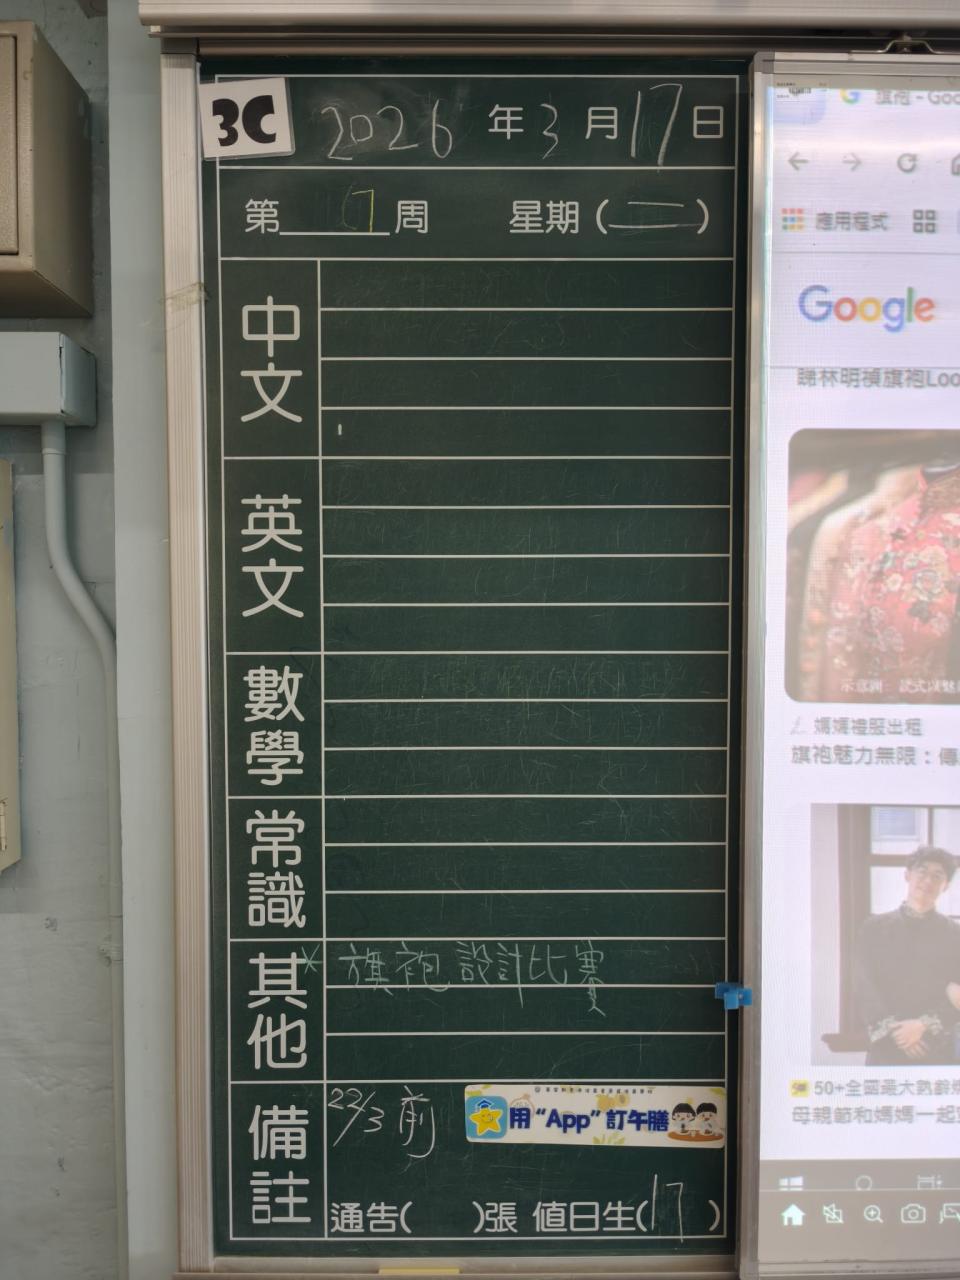 3C
2026年3月17日
第 周 星期(二)
中文
英文
數學
常識
其他
* 旗袍設計比賽
備註
22/3前
用“App”訂午膳
通告( )張 值日生(17)
旗袍 - Goo
應用程式
Google
睇林明禎旗袍Loo
媽媽禮服出租
旗袍魅力無限：傳
50+全國最大熟齡
母親節和媽媽一起